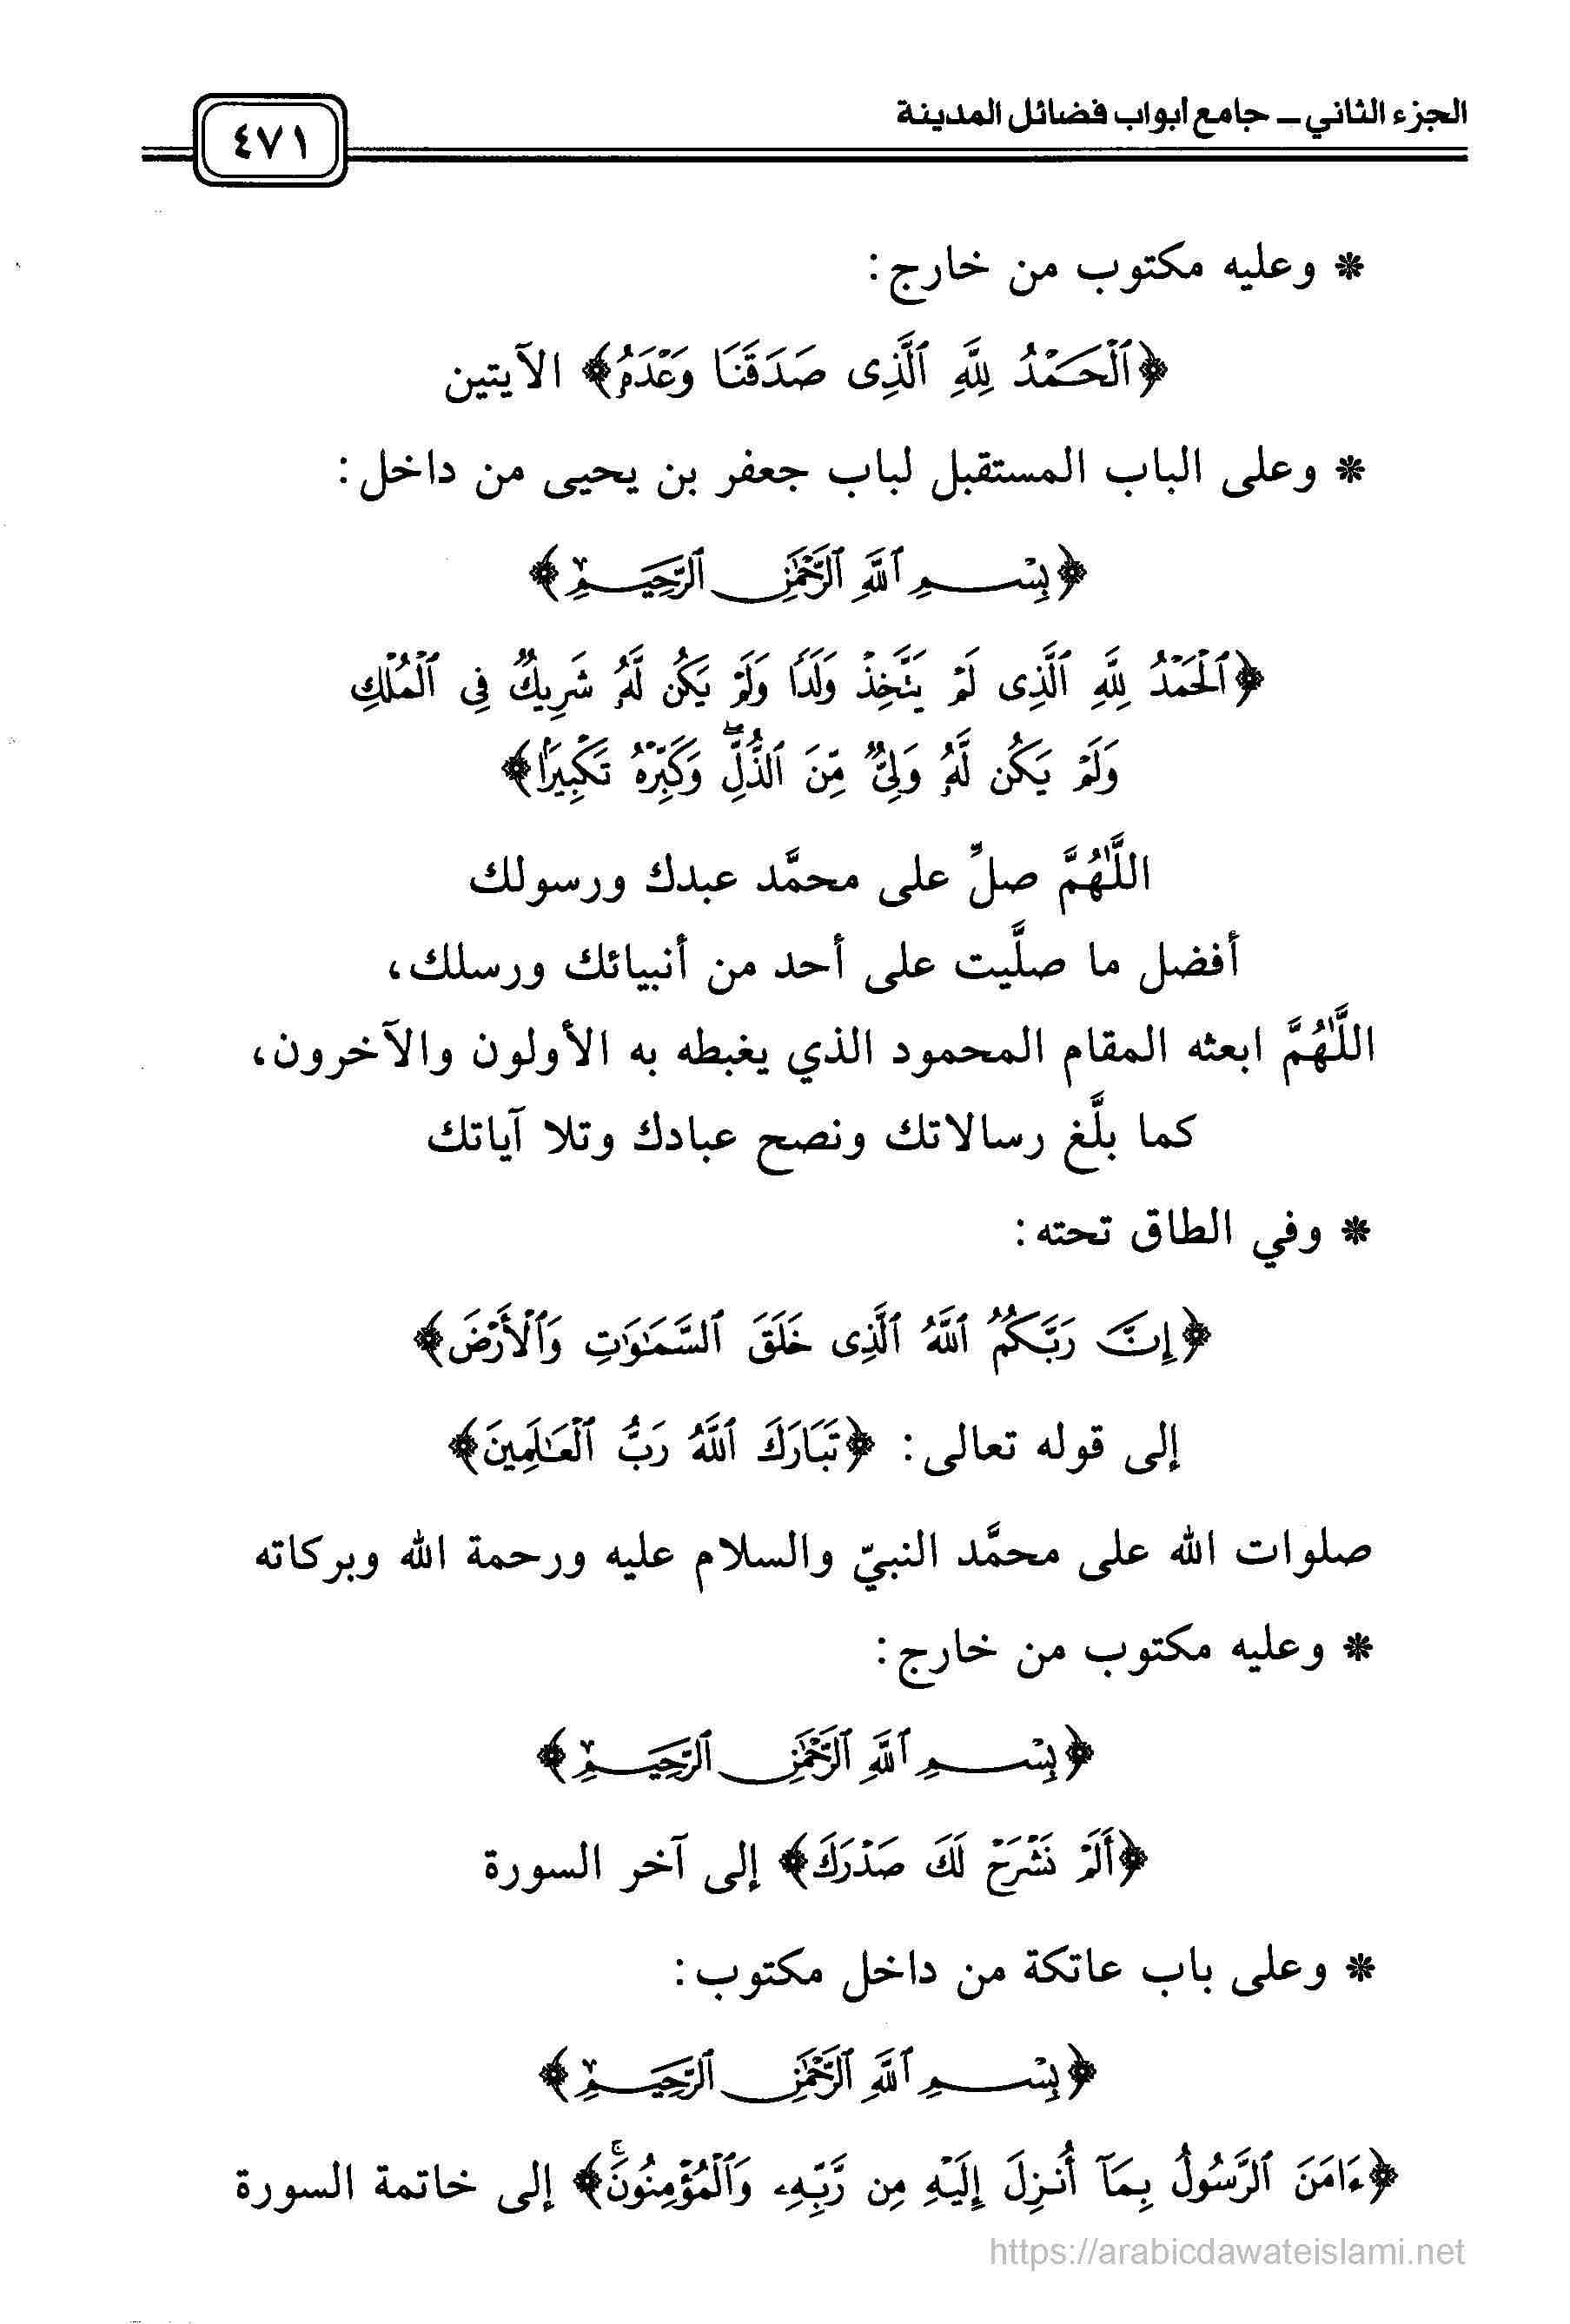 الجزء الثاني ـ جامع أبواب فضائل المدينة
٤٧١
* وعليه مكتوب من خارج:
﴿ٱلْحَمْدُ لِلَّهِ ٱلَّذِى صَدَقَنَا وَعْدَهُۥ﴾ الآيتين
* وعلى الباب المستقبل لباب جعفر بن يحيى من داخل:
﴿بِسْمِ ٱللَّهِ ٱلرَّحْمَٰنِ ٱلرَّحِيمِ﴾
﴿ٱلْحَمْدُ لِلَّهِ ٱلَّذِى لَمْ يَتَّخِذْ وَلَدًا وَلَمْ يَكُن لَّهُۥ شَرِيكٌ فِى ٱلْمُلْكِ
وَلَمْ يَكُن لَّهُۥ وَلِىٌّ مِّنَ ٱلذُّلِّ ۖ وَكَبِّرْهُ تَكْبِيرًا﴾
اللَّهُمَّ صلِّ على محمَّد عبدك ورسولك
أفضل ما صلَّيت على أحد من أنبيائك ورسلك،
اللَّهُمَّ ابعثه المقام المحمود الذي يغبطه به الأولون والآخرون،
كما بلَّغ رسالاتك ونصح عبادك وتلا آياتك
* وفي الطاق تحته:
﴿إِنَّ رَبَّكُمُ ٱللَّهُ ٱلَّذِى خَلَقَ ٱلسَّمَٰوَٰتِ وَٱلْأَرْضَ﴾
إلى قوله تعالى: ﴿تَبَارَكَ ٱللَّهُ رَبُّ ٱلْعَٰلَمِينَ﴾
صلوات الله على محمَّد النبيّ والسلام عليه ورحمة الله وبركاته
* وعليه مكتوب من خارج:
﴿بِسْمِ ٱللَّهِ ٱلرَّحْمَٰنِ ٱلرَّحِيمِ﴾
﴿أَلَمْ نَشْرَحْ لَكَ صَدْرَكَ﴾ إلى آخر السورة
* وعلى باب عاتكة من داخل مكتوب:
﴿بِسْمِ ٱللَّهِ ٱلرَّحْمَٰنِ ٱلرَّحِيمِ﴾
﴿ءَامَنَ ٱلرَّسُولُ بِمَآ أُنزِلَ إِلَيْهِ مِن رَّبِّهِۦ وَٱلْمُؤْمِنُونَ ۚ﴾ إلى خاتمة السورة
https://arabicdawateislami.net